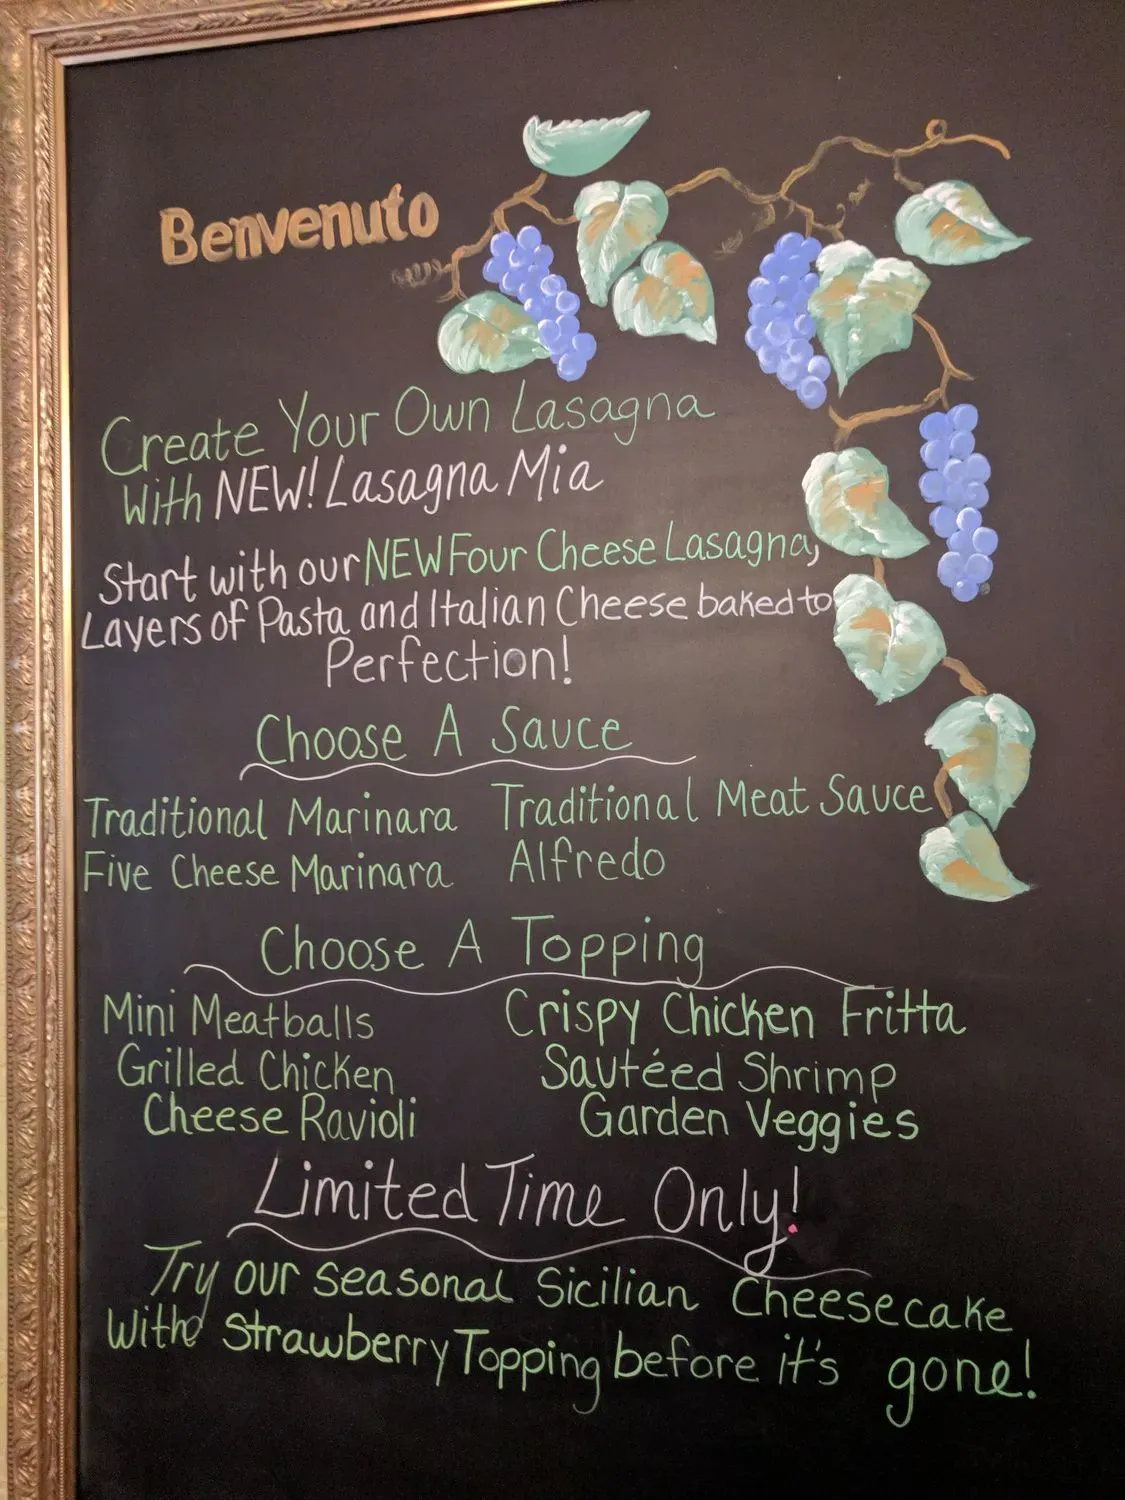 Benvenuto
Create Your Own Lasagna
With NEW! Lasagna Mia
Start with our NEW Four Cheese Lasagna,
Layers of Pasta and Italian Cheese baked to
Perfection!
Choose A Sauce
Traditional Marinara Traditional Meat Sauce
Five Cheese Marinara Alfredo
Choose A Topping
Mini Meatballs Crispy Chicken Fritta
Grilled Chicken Sautéed Shrimp
Cheese Ravioli Garden Veggies
Limited Time Only!
Try our seasonal Sicilian Cheesecake
With Strawberry Topping before it's gone!